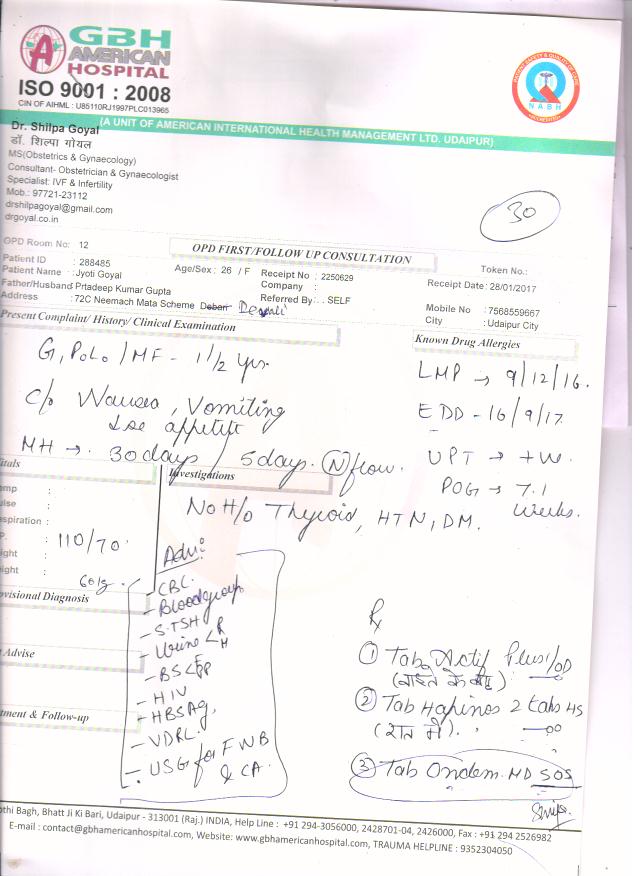 GBH
AMERICAN
HOSPITAL
ISO 9001 : 2008
CIN OF AIHML : U85110RJ1997PLC013965
PATIENT SAFETY & QUALITY OF CARE
NABH
ACCREDITED
(A UNIT OF AMERICAN INTERNATIONAL HEALTH MANAGEMENT LTD. UDAIPUR)
Dr. Shilpa Goyal
डॉ. शिल्पा गोयल
MS(Obstetrics & Gynaecology)
Consultant- Obstetrician & Gynaecologist
Specialist: IVF & Infertility
Mob.: 97721-23112
drshilpagoyal@gmail.com
drgoyal.co.in
30
OPD Room No: 12
OPD FIRST/FOLLOW UP CONSULTATION
Token No.:
Patient ID : 288485
Age/Sex : 26 / F
Receipt No : 2250629
Receipt Date : 28/01/2017
Patient Name : Jyoti Goyal
Company :
Father/Husband Prtadeep Kumar Gupta
Referred By : . SELF
Mobile No : 7568559667
Address : 72C Neemach Mata Scheme
City : Udaipur City
Present Complaint/ History/ Clinical Examination
Known Drug Allergies
G1P0L0 / MF - 1 1/2 yrs.
LMP → 9/12/16.
C/o Nausea, Vomiting
EDD - 16/9/17.
appetite
MH → 30 days / 5 days. (N) flow.
UPT → +ve.
POG → 7.1
weeks.
itals
Investigations
No H/o Thyroid, HTN, DM.
emp :
ulse :
espiration :
P. : 110/70
ight :
eight : 60
Adv:
- CBC.
- Blood group
- S.TSH
- Urine < R M
- BS < F PP
- HIV
- HBSAg,
- VDRL.
- USG for FWB
& CA.
ovisional Diagnosis
Advise
tment & Follow-up
Rx
① Tab Actif Plus 1/OD
② Tab Hapinos 2 tabs HS
(रात में).
③ Tab Ondem MD SOS
othi Bagh, Bhatt Ji Ki Bari, Udaipur - 313001 (Raj.) INDIA, Help Line : +91 294-3056000, 2428701-04, 2426000, Fax : +91 294 2526982
E-mail : contact@gbhamericanhospital.com, Website: www.gbhamericanhospital.com, TRAUMA HELPLINE : 9352304050